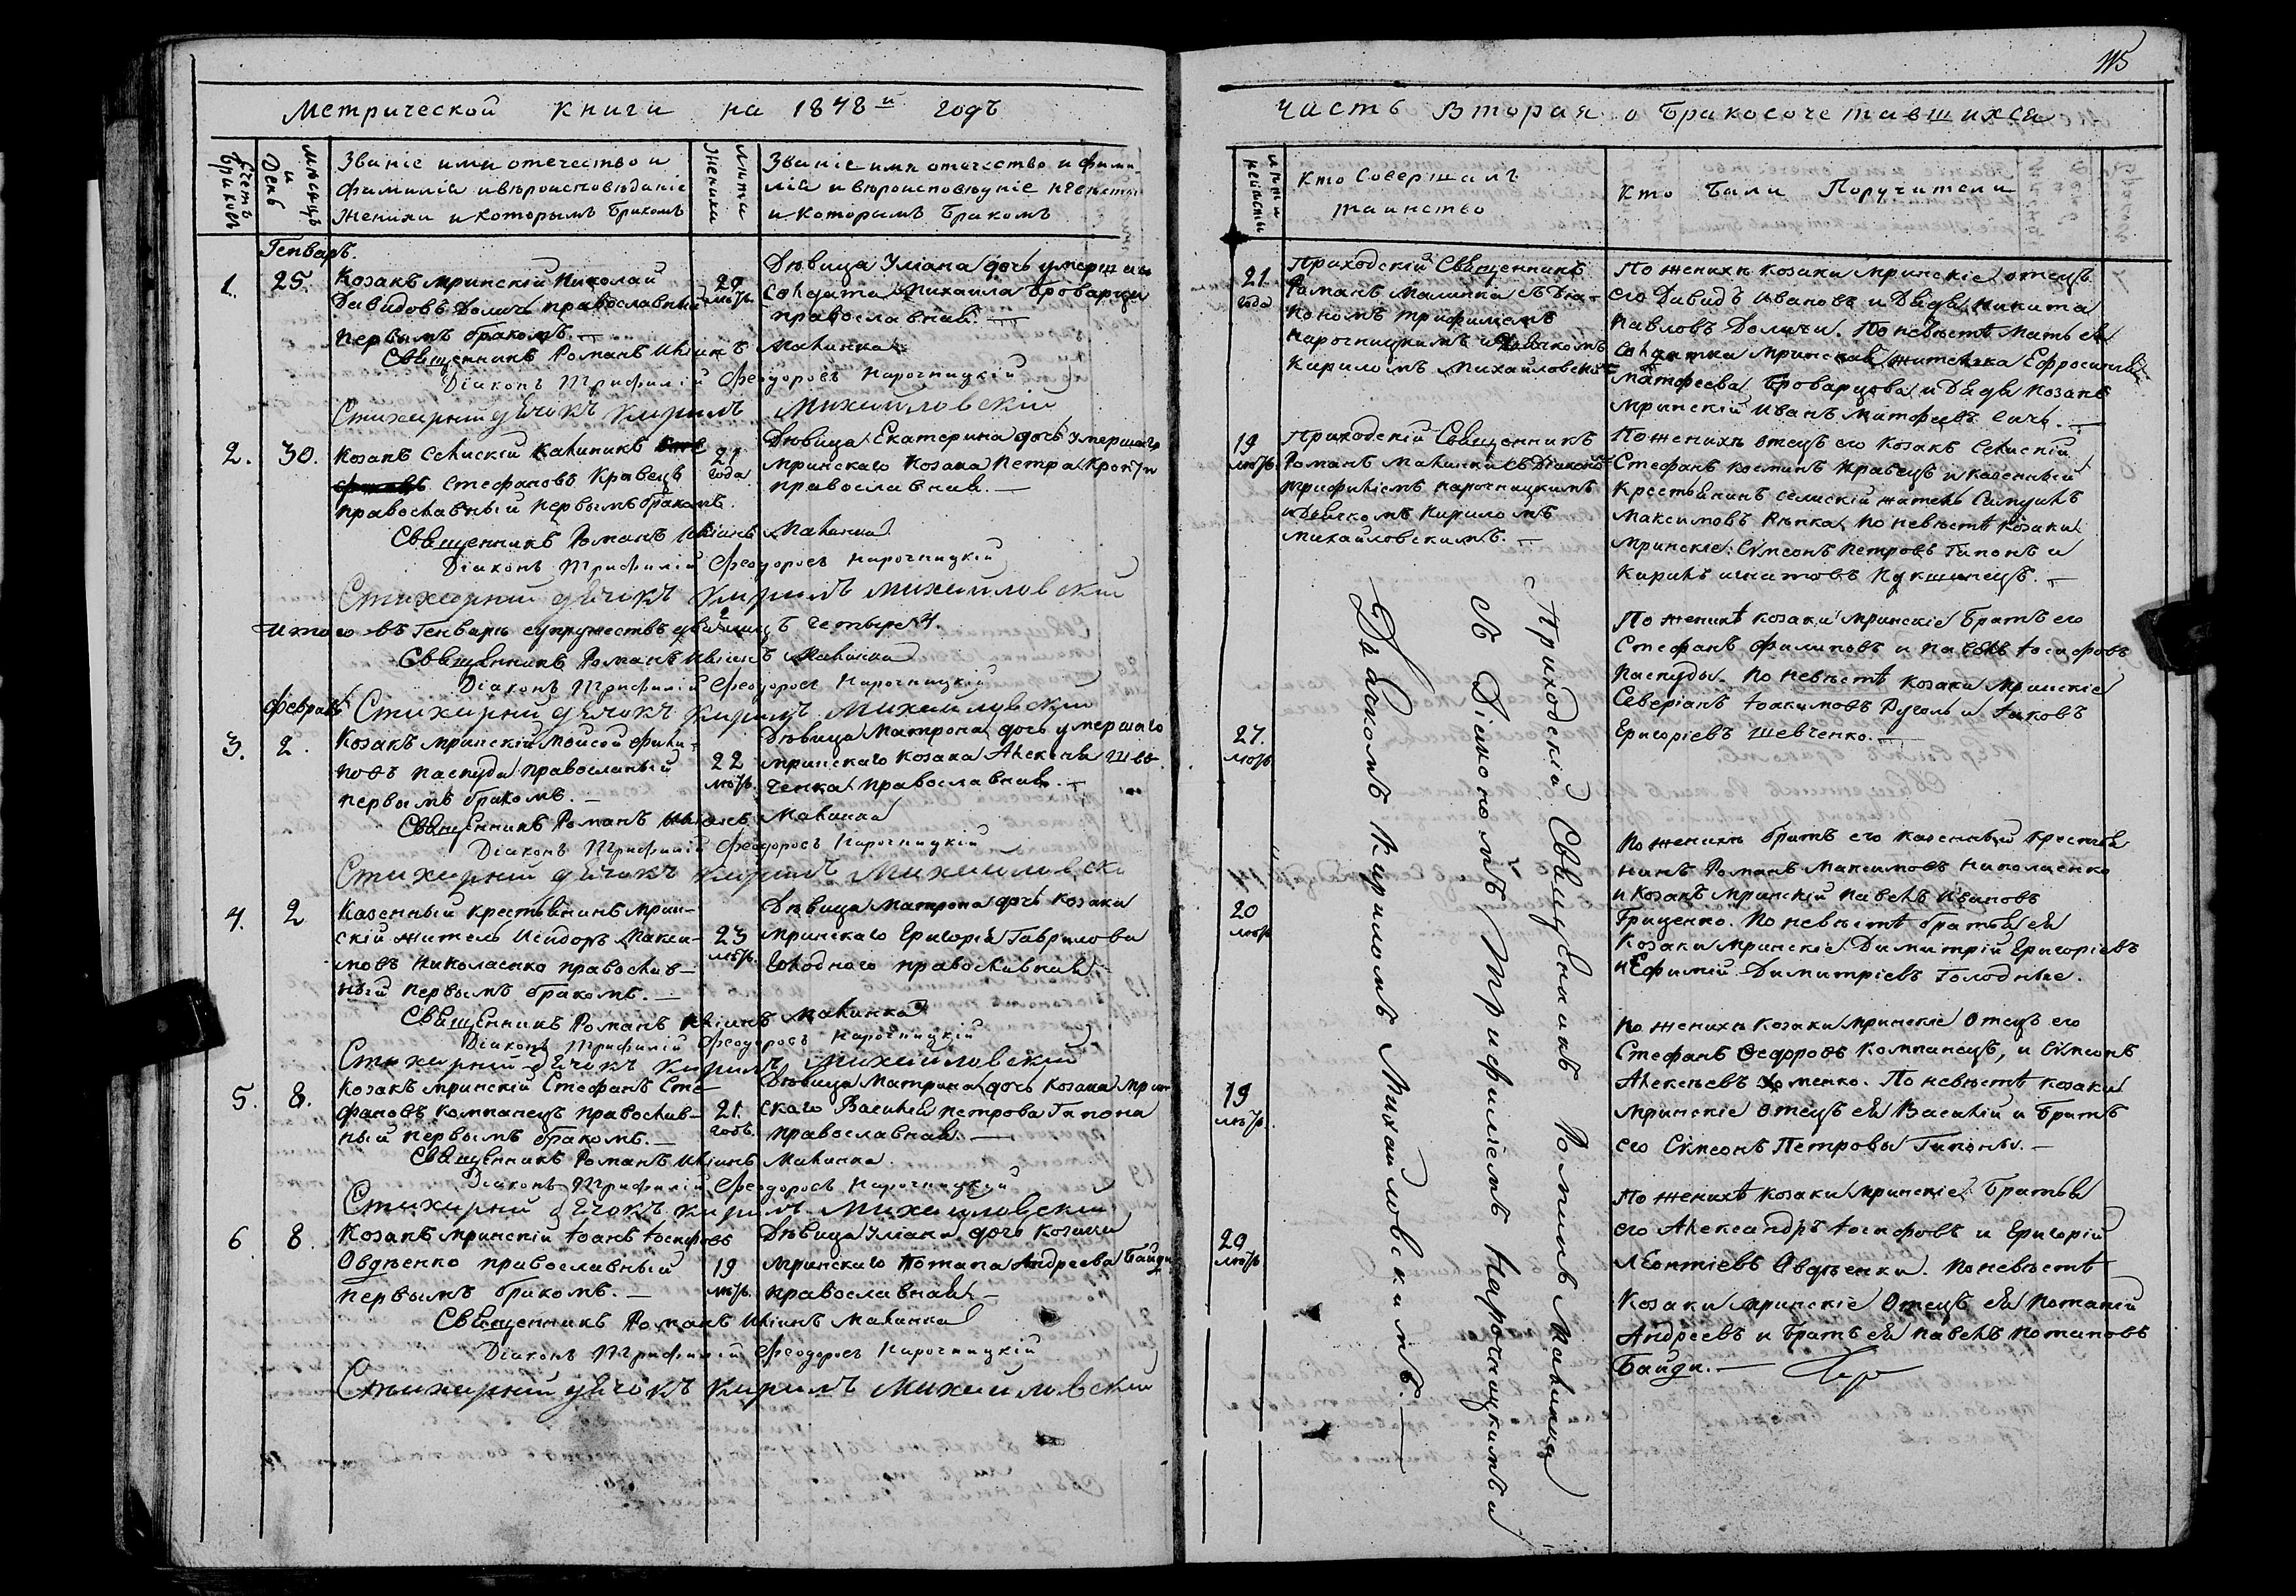 Метрической книги на 1848й годъ
Счетъ браковъ
Мѣсяцъ и День
Званіе имя отечество и
фамиліа и вѣроисповѣданіе
Жениха и которымъ бракомъ
Лѣта Жениха
Званіе имя отечество и фами-
ліа и вѣроисповѣдніе нѣвѣсты
и которымъ бракомъ
Генварь.
1.
25.
Козакъ мринскій Николай
Давидовъ Долича православный
первымъ бракомъ. —
20
лѣтъ.
Дѣвица Уліана дочь умершаго
солдата Михаила Броварца
православная. —
Священникъ Романъ Иліинъ Малинка
Діаконъ Трифилій Феодоровъ Нарочницкій
Стихарный дѣячокъ Кирилъ Михайловскій
2.
30.
Козакъ Селискій Калиникъ
Стефановъ Кравецъ
православный первымъ бракомъ.
21
года
Дѣвица Екатерина дочь умершаго
мринскаго козака Петра
православная. —
Священникъ Романъ Иліинъ Малинка
Діаконъ Трифилій Феодоровъ Нарочницкій
Стихарный дѣячокъ Кирилъ Михайловскій
Итого въ Генварѣ супружествъ два 2 лицъ четыре 4.
Священникъ Романъ Иліинъ Малинка
Діаконъ Трифилій Феодоровъ Нарочницкій
Февраль
Стихарный дѣячокъ Кирилъ Михайловскій
3.
2.
Козакъ мринскій Моисей Фили-
повъ Паскуда православный
первымъ бракомъ. —
22
лѣтъ.
Дѣвица Матрона дочь умершаго
мринскаго козака Алексѣя Шев-
ченка православная. —
Священникъ Романъ Иліинъ Малинка
Діаконъ Трифилій Феодоровъ Нарочницкій
Стихарный дѣячокъ Кирилъ Михайловскій
4.
2
Казенный крестьянинъ мрин-
скій житель Исидоръ Макси-
мовъ Николаенко православ-
ный первымъ бракомъ. —
23
лѣтъ.
Дѣвица Матрона дочь козака
мринскаго Григорія Гаврилова
Голодного православная.
Священникъ Романъ Иліинъ Малинка
Діаконъ Трифилій Феодоровъ Нарочницкій
Стихарный дѣячокъ Кирилъ Михайловскій
5.
8.
Козакъ мринскій Стефанъ Сте-
фановъ Компанецъ православ-
ный первымъ бракомъ. —
21.
годъ.
Дѣвица Матрона дочь козака мрин
скаго Василія Петрова Гапона
православная. —
Священникъ Романъ Иліинъ Малинка.
Діаконъ Трифилій Феодоровъ Нарочницкій
Стихарный дѣячокъ Кирилъ Михайловскій
6.
8.
Козакъ мринскій Іоанъ Іосифовъ
Овдѣенко православный
первымъ бракомъ. —
19
лѣтъ.
Дѣвица Уліана дочь козака
мринскаго Потапа Андреева Байди
православная —
Священникъ Романъ Иліинъ Малинка
Діаконъ Трифилій Феодоровъ Нарочницкій
Стихарный дѣячокъ Кирилъ Михайловскій
115
часть вторая о бракосочетавшихся
лѣта невѣсты
Кто Совершалъ
таинство
Кто были Поручители
21.
года
Приходскій Священникъ
Романъ Малинка съ Діа-
кономъ Трифилиемъ
Нарочницкимъ и Дьячкомъ
Кириломъ Михайловскимъ
По женихѣ козаки мринскіе отецъ
его Давидъ Ивановъ и Дядя Никита
Павловъ Доличи. По невѣстѣ Мать ея
солдатка мринская жителька Ефросинія
Матфеева Броварцова и Дядя козакъ
мринскій Иванъ Матфеевъ Сичь. —
19
лѣтъ.
Приходскій Священникъ
Романъ Малинка съ Діакономъ
Трифиліемъ Нарочницкимъ
и Дьячкомъ Кириломъ
Михайловскимъ. —
По женихѣ отецъ его Козакъ Селискій
Стефанъ Косминъ Кравецъ и казенный
Крестьянинъ селискій житель Самуилъ
Максимовъ Рѣпка по невѣстѣ козаки
Мринскіе: Симеонъ Петровъ Гапонъ и
Кирилъ Игнатовъ Кукшинецъ. —
27.
лѣтъ
По женихѣ козаки мринскіе Братъ его
Стефанъ Филиповъ и Павелъ Іосифовъ
Паскуды. По невѣстѣ козаки мринскіе
Северіанъ Іоакимовъ Руголь и Іаковъ
Григоріевъ Шевченко. —
Приходскій Священникъ Романъ Малинка
съ Діакономъ Трифиліемъ Нарочницкимъ и
Дьячкомъ Кириломъ Михайловскимъ. —
20
лѣтъ
По женихѣ братъ его казенный крестья
нинъ Романъ Максимовъ Николаенко
и козакъ мринскій Павелъ Ивановъ
Гриценко. По невѣстѣ братья ея
козаки мринскіе Димитрій Григоріевъ
и Ефимій Димитріевъ Голодные.
19
лѣтъ.
По женихѣ козаки мринскіе отецъ его
Стефанъ Федоровъ Компанецъ, и Симеонъ
Алексѣевъ Хоменко. По невѣстѣ козаки
мринскіе отецъ ея Василій и братъ
его Симеонъ Петровы Гапоны. —
20
лѣтъ
По женихѣ козаки мринскіе братья
его Александръ Іосифовъ и Григорій
Леонтіевъ Овдѣенки. По невѣстѣ
козаки мринскіе отецъ ея Потапій
Андреевъ и братъ ея Павелъ Потаповъ
Байди. —